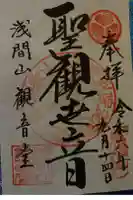 奉拝
令和六年
九月十四日
聖観世音
浅間山観音堂